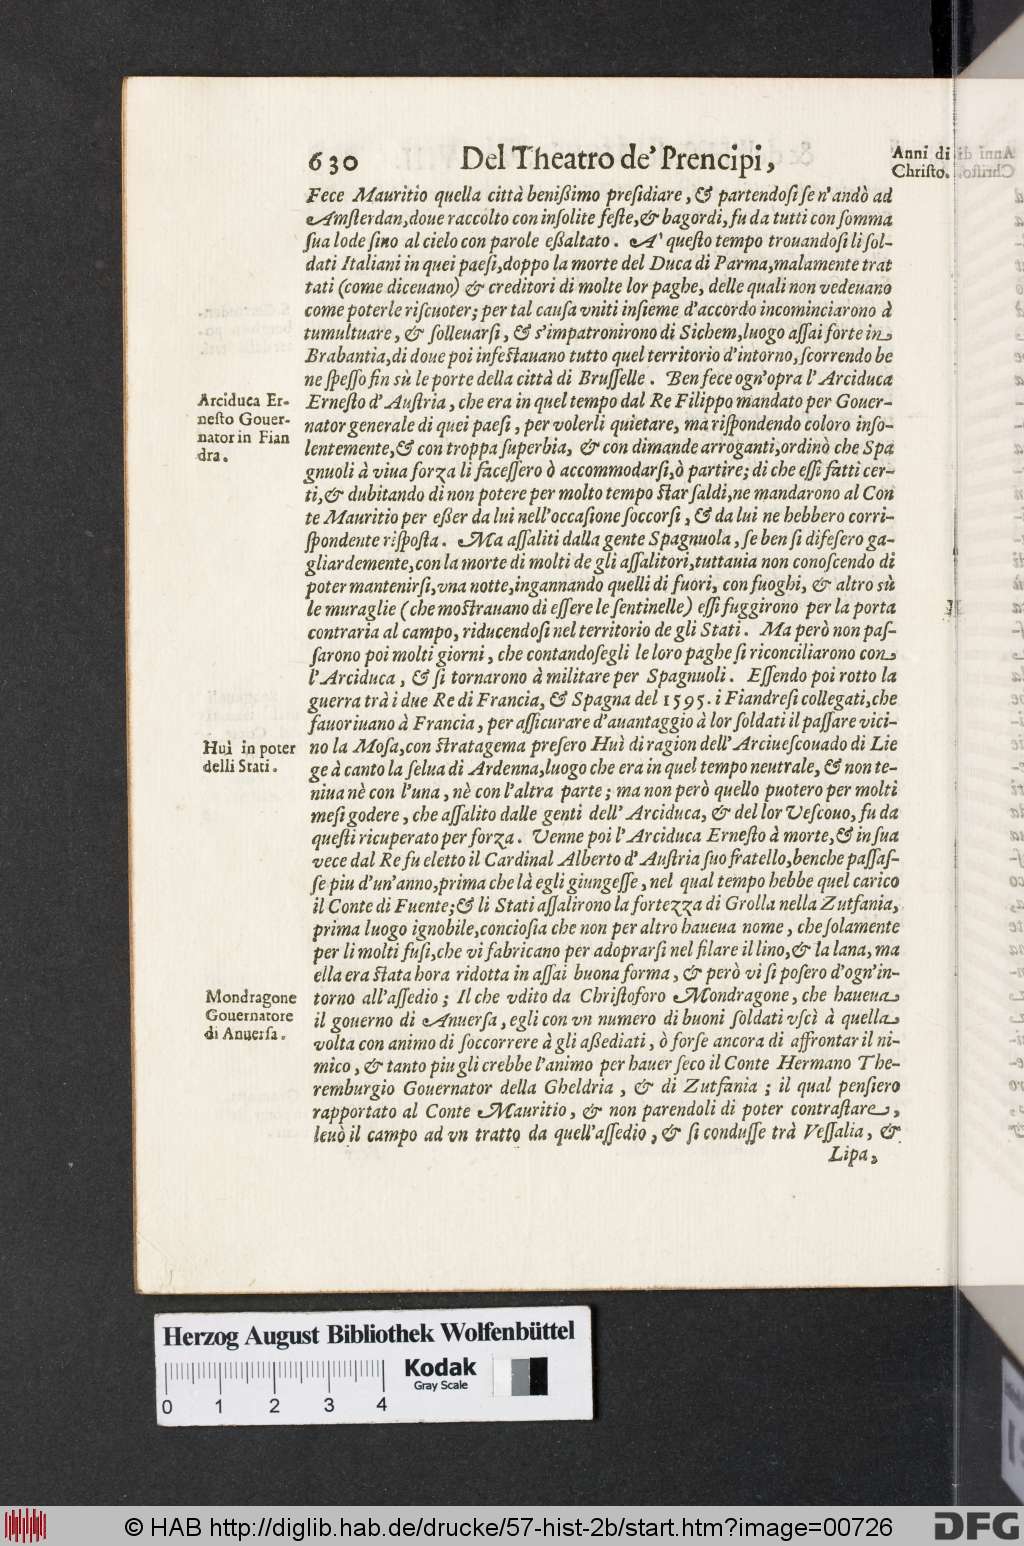 630 Del Theatro de' Prencipi,
Anni di
Christo.
Fece Mauritio quella città benißimo presidiare, & partendosi se n'andò ad
Amsterdan, doue raccolto con insolite feste, & bagordi, fu da tutti con somma
sua lode sino al cielo con parole eßaltato. A' questo tempo trouandosi li sol-
dati Italiani in quei paesi, doppo la morte del Duca di Parma, malamente trat
tati (come diceuano) & creditori di molte lor paghe, delle quali non vedeuano
come poterle riscuoter; per tal causa vniti insieme d'accordo incominciarono à
tumultuare, & solleuarsi, & s'impatronirono di Sichem, luogo assai forte in
Brabantia, di doue poi infestauano tutto quel territorio d'intorno, scorrendo be
ne spesso fin sù le porte della città di Brusselle. Ben fece ogn'opra l'Arciduca
Arciduca Er-
nesto Gouer-
nator in Fian
dra.
Ernesto d'Austria, che era in quel tempo dal Re Filippo mandato per Gouer-
nator generale di quei paesi, per volerli quietare, ma rispondendo coloro inso-
lentemente, & con troppa superbia, & con dimande arroganti, ordinò che Spa
gnuoli à viua forza li facessero ò accommodarsi, ò partire; di che essi fatti cer-
ti, & dubitando di non potere per molto tempo star saldi, ne mandarono al Con
te Mauritio per eßer da lui nell'occasione soccorsi, & da lui ne hebbero corri-
spondente risposta. Ma assaliti dalla gente Spagnuola, se ben si difesero ga-
gliardemente, con la morte di molti de gli assalitori, tuttauia non conoscendo di
poter mantenirsi, vna notte, ingannando quelli di fuori, con fuoghi, & altro sù
le muraglie (che mostrauano di essere le sentinelle) essi fuggirono per la porta
contraria al campo, riducendosi nel territorio de gli Stati. Ma però non pas-
sarono poi molti giorni, che contandosegli le loro paghe si riconciliarono con
l'Arciduca, & si tornarono à militare per Spagnuoli. Essendo poi rotto la
guerra trà i due Re di Francia, & Spagna del 1595. i Fiandresi collegati, che
fauoriuano à Francia, per assicurare d'auantaggio à lor soldati il passare vici-
Huì in poter
delli Stati.
no la Mosa, con stratagema presero Huì di ragion dell'Arciuescouado di Lie
ge à canto la selua di Ardenna, luogo che era in quel tempo neutrale, & non te-
niua nè con l'una, nè con l'altra parte; ma non però quello puotero per molti
mesi godere, che assalito dalle genti dell'Arciduca, & del lor Vescouo, fu da
questi ricuperato per forza. Venne poi l'Arciduca Ernesto à morte, & in sua
vece dal Re fu eletto il Cardinal Alberto d'Austria suo fratello, benche passas-
se piu d'un'anno, prima che là egli giungesse, nel qual tempo hebbe quel carico
il Conte di Fuente; & li Stati assalirono la fortezza di Grolla nella Zutfania,
prima luogo ignobile, conciosia che non per altro haueua nome, che solamente
per li molti fusi, che vi fabricano per adoprarsi nel filare il lino, & la lana, ma
ella era stata hora ridotta in assai buona forma, & però vi si posero d'ogn'in-
Mondragone
Gouernatore
di Anuersa.
torno all'assedio; Il che vdito da Christoforo Mondragone, che haueua
il gouerno di Anuersa, egli con vn numero di buoni soldati vscì à quella
volta con animo di soccorrere à gli aßediati, ò forse ancora di affrontar il ni-
mico, & tanto piu gli crebbe l'animo per hauer seco il Conte Hermano The-
remburgio Gouernator della Gheldria, & di Zutfania; il qual pensiero
rapportato al Conte Mauritio, & non parendoli di poter contrastare,
leuò il campo ad vn tratto da quell'assedio, & si condusse trà Vessalia, &
Lipa,
Herzog August Bibliothek Wolfenbüttel
Kodak
Gray Scale
0 1 2 3 4
© HAB http://diglib.hab.de/drucke/57-hist-2b/start.htm?image=00726
DFG